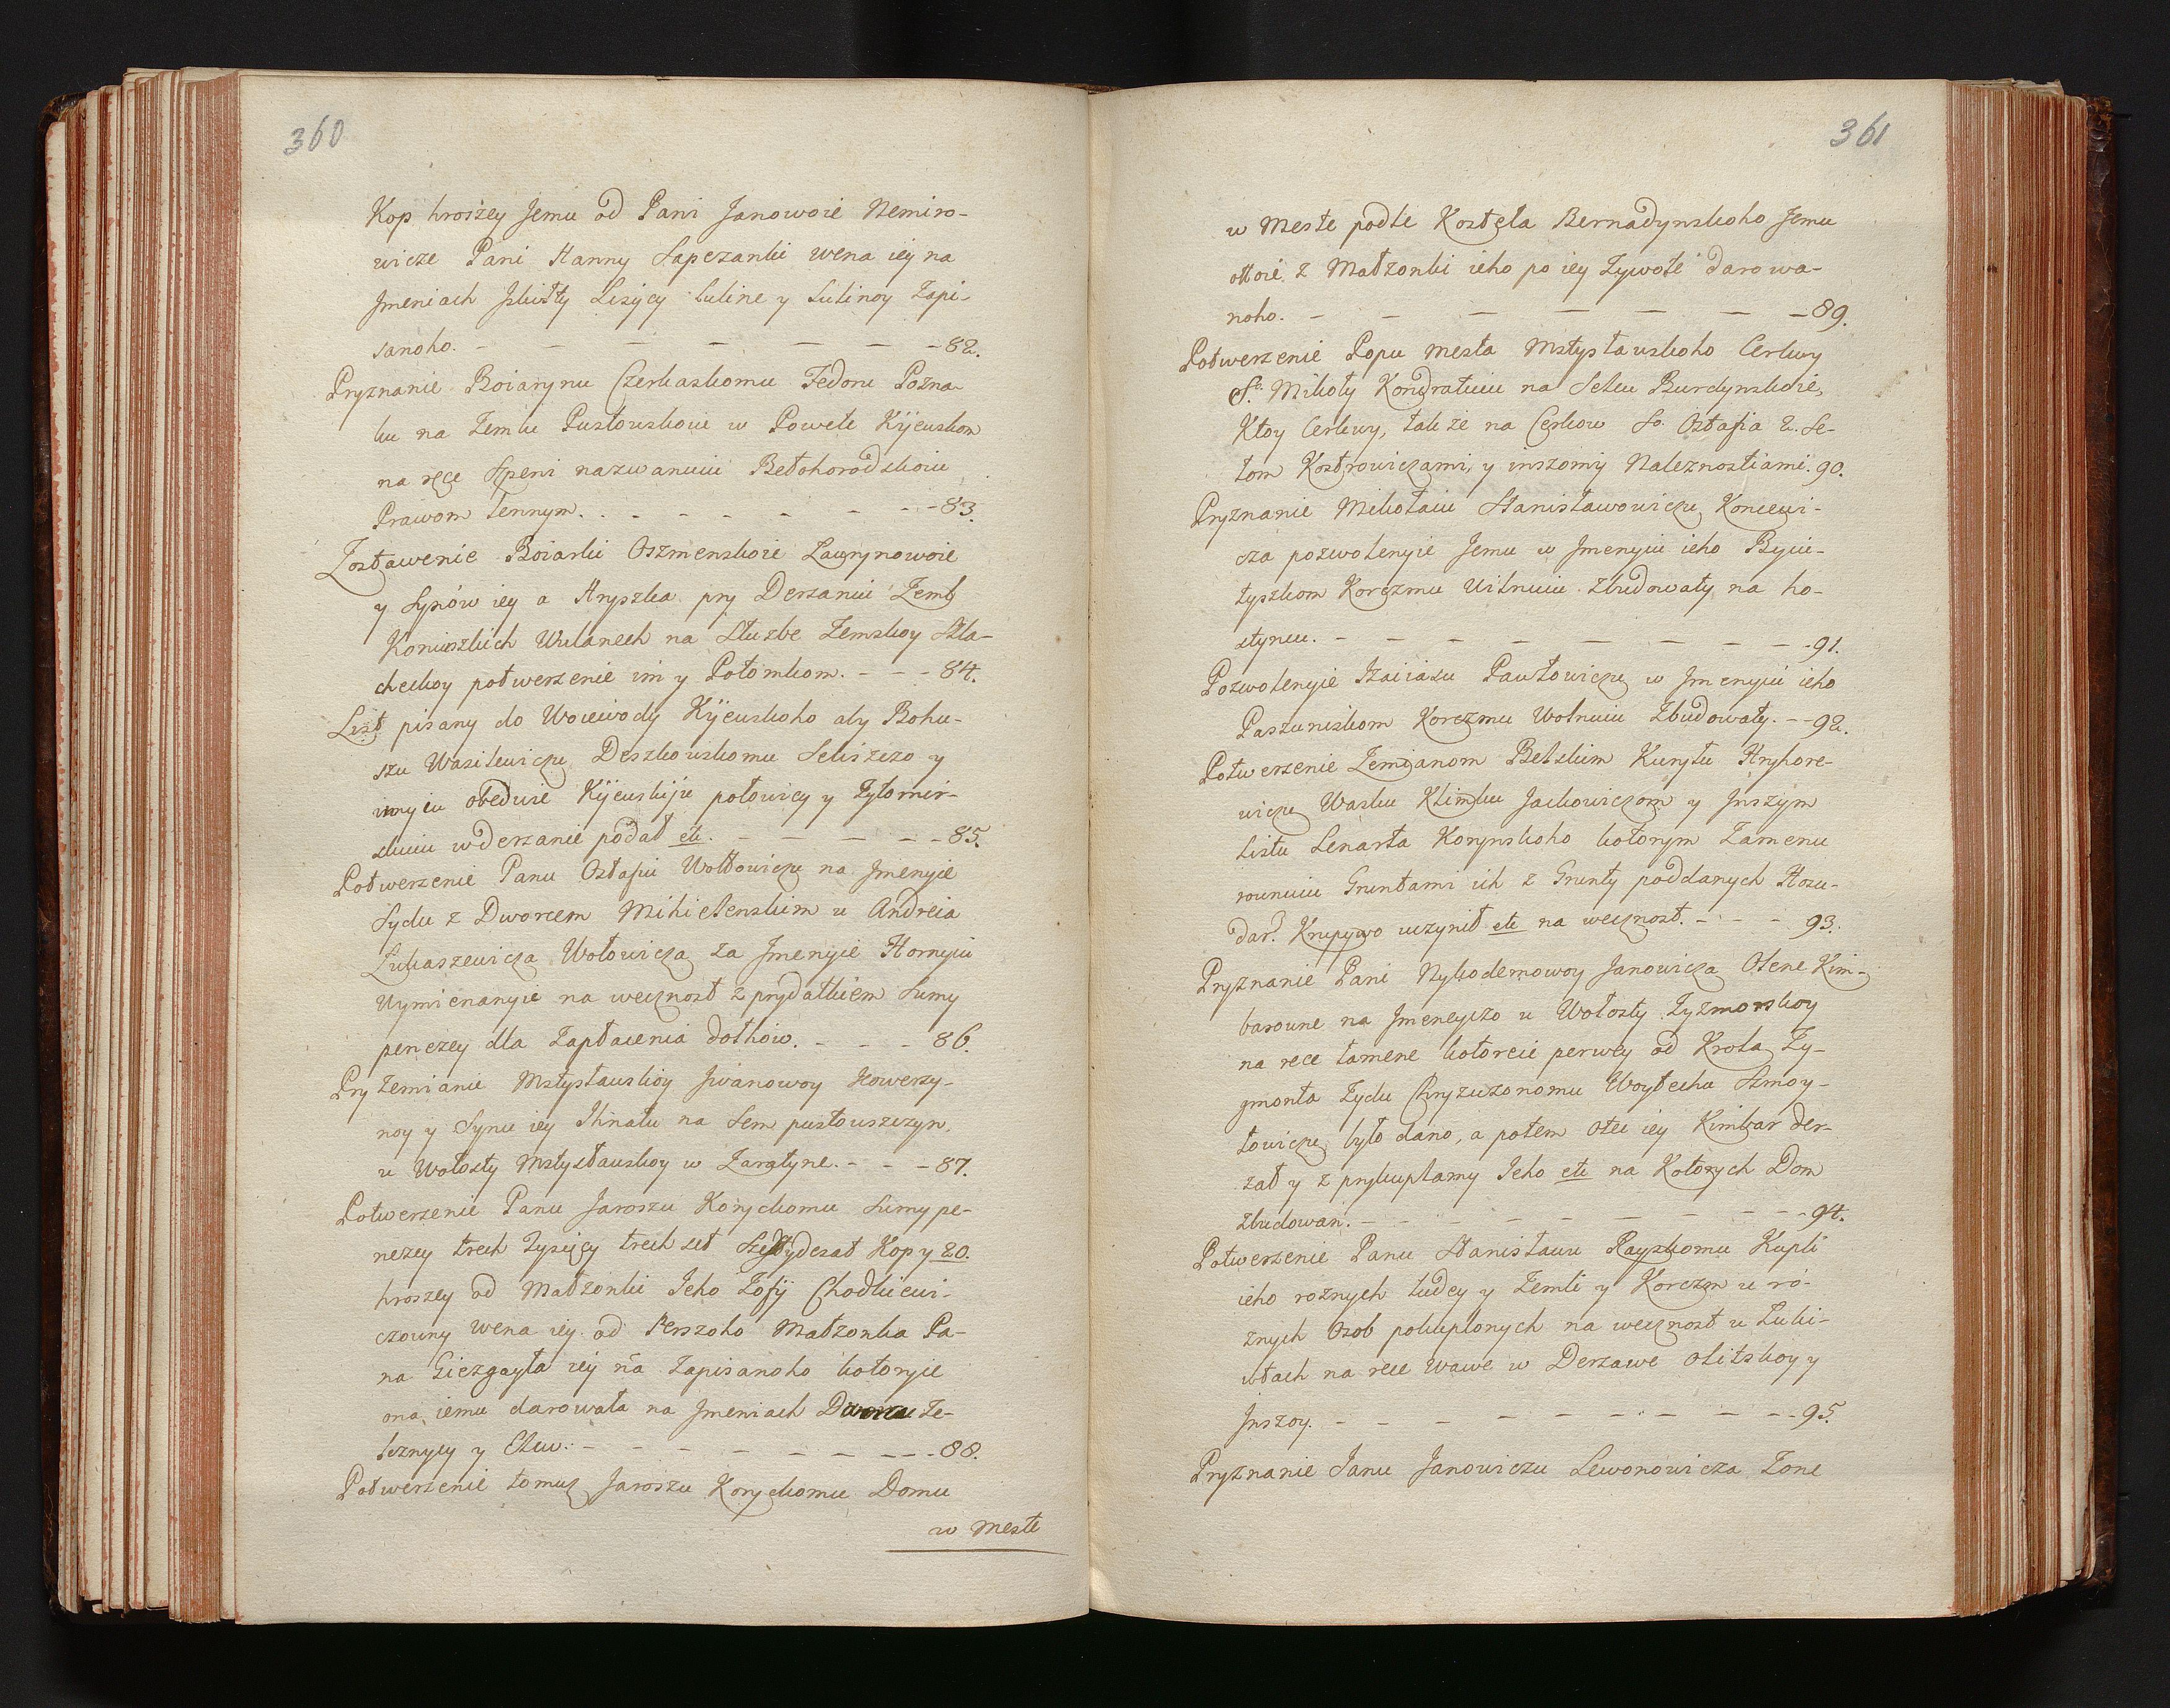 360
Kop hroszey Jemu od Pani Janowoie Nemiro-
wicze Pani Hanny Sapezanki wena iey na
Jmeniach Lisycy Luline y Lulinoy Zapi-
sanoho. - - - - - - - 82.
Pryznanie Boiarynu Czerkaskomu Fedoru Pozna-
ku na Zemlu Pustowskoiu w Powete Kijewskom
na rece Rpeni nazwanuiu Bełohorodskoiu
Prawom lennym. . - - - - - - - 83.
Zostawenie Boiarki Oszmenskoie Lawrynowoie
y Synów iey a Hryszka pry Derzaniu Zeml
Koniuszkich Wulanech na Słuzbe Zemskoy Szla-
checkoy potwerzenie im y Potomkom. - - - 84.
List pisany do Woiewody Kijewskoho aby Bohu-
szu Wasilewiczu Deszkowskomu Seliszczo y
imyiu obedwie Kijewskije połowicy y Zytomir-
skuiu w derzanie podał etc. - - - - - 85.
Potwerzenie Panu Ostafiu Wołłowiczu na Jmenyie
Sydu z Dworcem Mihielenskim u Andreia
Lukaszewicza Wołowicza za Jmenyie Hornyiu
Wymienanyie na wecznost z prydatkiem Sumy
penezey dla Zapłacenia dołhow. - - - 86.
Pry Zemianie Mstysławskioy Jwanowoy Kowerzy-
noy y Synu iey Ihnatu na Sem pustowszczyn,
u Wołosty Mstysławskoy w Zaratyne. - - - 87.
Potwerzenie Panu Jaroszu Koryckomu Sumy pe-
nezey trech Tysiący trech set Kop y 20.
hroszey od Małzonki Jeho Zofij Chodkiewi-
czowny wena iey od Perszoho Małzonka Pa-
na Giezgayła iey na Zapisanoho kotoryie
ona iemu darowała na Jmeniach Ze-
leznycy y - - - - - - - - 88.
Potwerzenie tomuz Jaroszu Koryckomu Domu
w Meste
361
w Meste podle Kostela Bernadynskoho Jemu
ottoie z Małzonki ieho po iey Zywote darowa-
noho. - - - - - - - 89.
Potwerzenie Popu Mesta Mstysławskoho Cerkwy
So. Mikoły Kondratuiu na Selcu Burdynskoie,
Ktoy Cerkwy, tak ze na Cerkow So. Ostafia z. Se-
lom Kostrowiczami, y inszomi Naleznostiami. 90.
Pryznanie Mikołaiu Stanisławowiczu Koncewi-
cza pozwolenyie Jemu w Jmenyiu ieho Byciu-
tyszkom Korczmu Wilnuiu Zbudowaty na ho-
styncu. - - - - - - - - 91.
Pozwolenyie Izaiaszu Pawłowiczu w Jmenyiu ieho
Paszuniskom Korczmu Wolnuiu Zbudowaty. - - 92.
Potwerzenie Zemianom Belskim Kuryłu Hryhore-
wiczu Wasku Klimku Jackowiczom y Jnszym
Listu Lenarta Korynskoho kotorym Zamenu
rownuiu Gruntami ich z Grunty poddanych Hosu-
dar. Krupywo uczynił etc na wecznost. - - - 93.
Pryznanie Pani Nykodemowoy Janowicza Olene Kim-
barowne na Jmeneyczo u Wołosty Zyzmorskoy
na rece lamene kotoreie perwey od Krola Zy-
gmonta Zydu Chryzuzonomu Woytechu Szmoy-
łowiczu było dano, a potem Otec iey Kimbar der-
zał y z prykuplamy Jeho etc na Kotorych Dom
Zbudowan. - - - - - - - - - 94.
Potwerzenie Panu Stanisławu Rayskomu Kupli
ieho roznych ludey y Zemli y Korczm u ró-
znych Osob pokuplonych na wecznost u Luki-
wtach na rece Wawe w Derzawe Olitskoy y
Jnszoy. - - - - - - - - - 95.
Pryznanie Janu Janowiczu Lewonowicza Zone